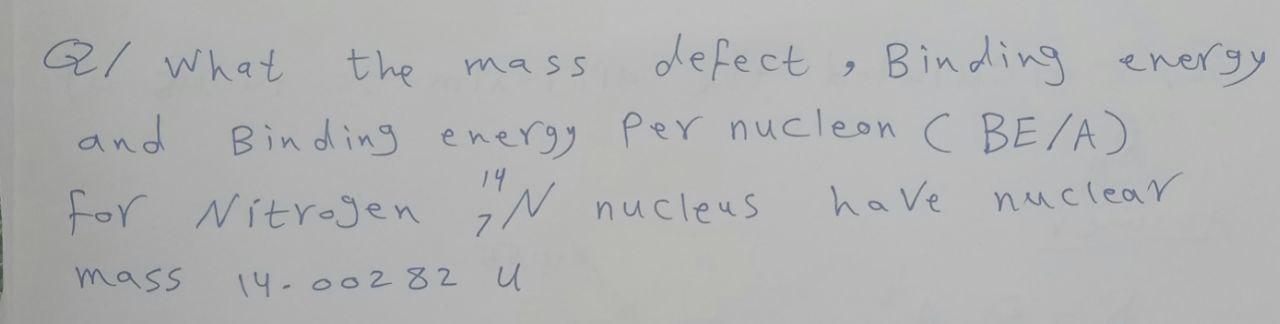 Q1/ What the mass defect, Binding energy
and Binding energy Per nucleon (BE/A)
for Nitrogen ¹⁴₇N nucleus have nuclear
mass 14.00282 u